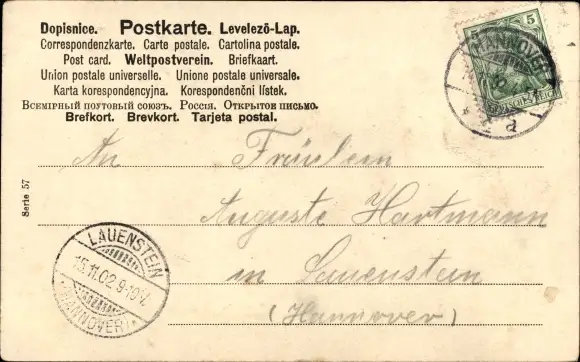 Dopisnice. Postkarte. Levelező-Lap.
Correspondenzkarte. Carte postale. Cartolina postale.
Post card. Weltpostverein. Briefkaart.
Union postale universelle. Unione postale universale.
Karta korespondencyjna. Korespondenční lístek.
Всемірный почтовый союзъ. Россія. Открытое письмо.
Brefkort. Brevkort. Tarjeta postal.
5 5
HANNOVER
DEUTSCHES REICH
An Fräulein
Auguste Hartmann
in Lauenstein
(Hannover)
Serie 57
LAUENSTEIN
15.11.02 9-10 V.
(HANNOVER)